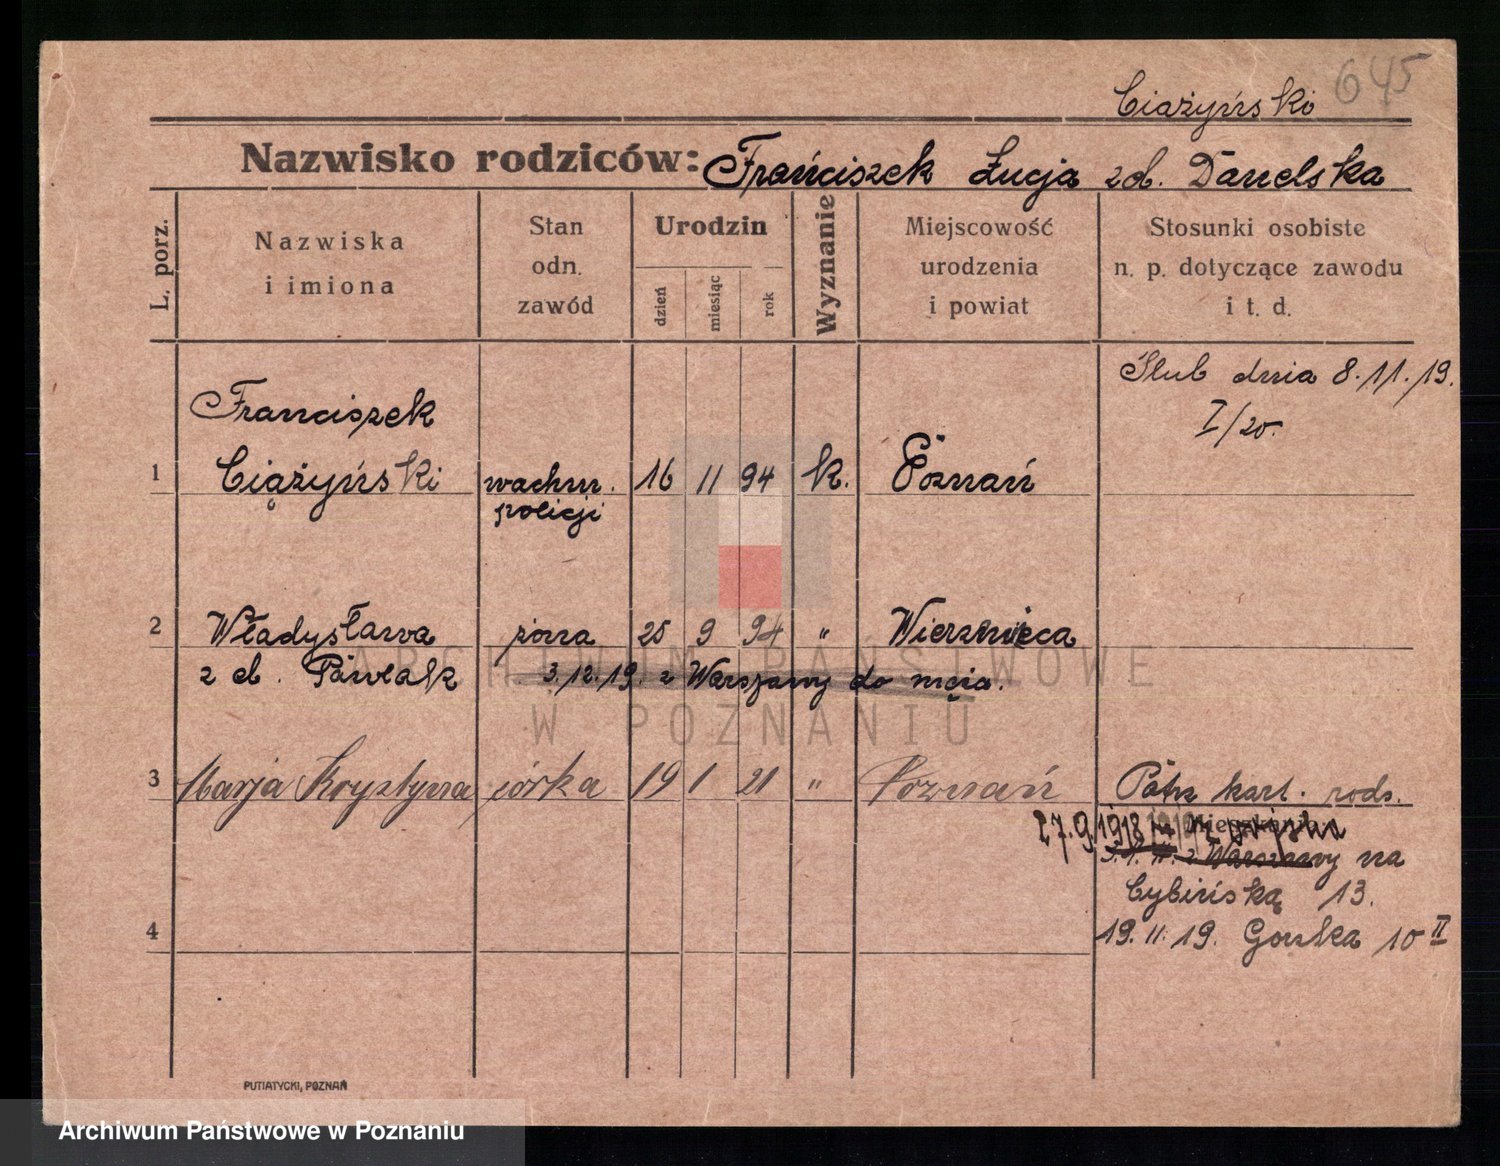 645
Ciążyński
Nazwisko rodziców: Frańciszek Łucja zd. Danelska
L. porz.
Nazwiska i imiona
Stan odn. zawód
Urodzin
dzień
miesiąc
rok
Wyznanie
Miejscowość urodzenia i powiat
Stosunki osobiste n. p. dotyczące zawodu i t. d.
Ślub dnia 8.11.19.
I/20.
Franciszek
1 Ciążyński wachm. 16 11 94 k. Poznań
policji
2 Władysława żona 25 9 94 " Wierzenica
z d. Pawlak 3.12.19. z Warszawy do męża.
3 Marja Krystyna córka 19 1 21 " Poznań Patrz kart. rodz.
27.9.1918 z wojska
z Warszawy na
Cybińską 13.
4 19.11.19. Gorska 10 II
PUTIATYCKI, POZNAŃ
ARCHIWUM PAŃSTWOWE
W POZNANIU
Archiwum Państwowe w Poznaniu